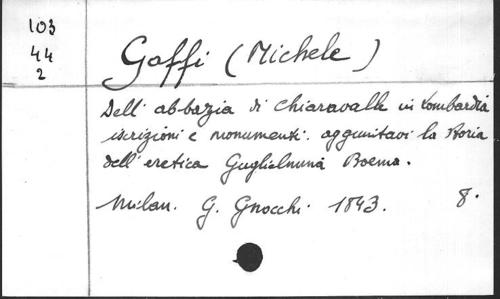 103
44
2
Gaffi (Michele)
Dell' abbazia di Chiaravalle in Lombardia
iscrizioni e monumenti. aggiuntavi la Storia
dell' eretica Guglielmina Boema.
Milan. G. Gnocchi. 1843. 8.